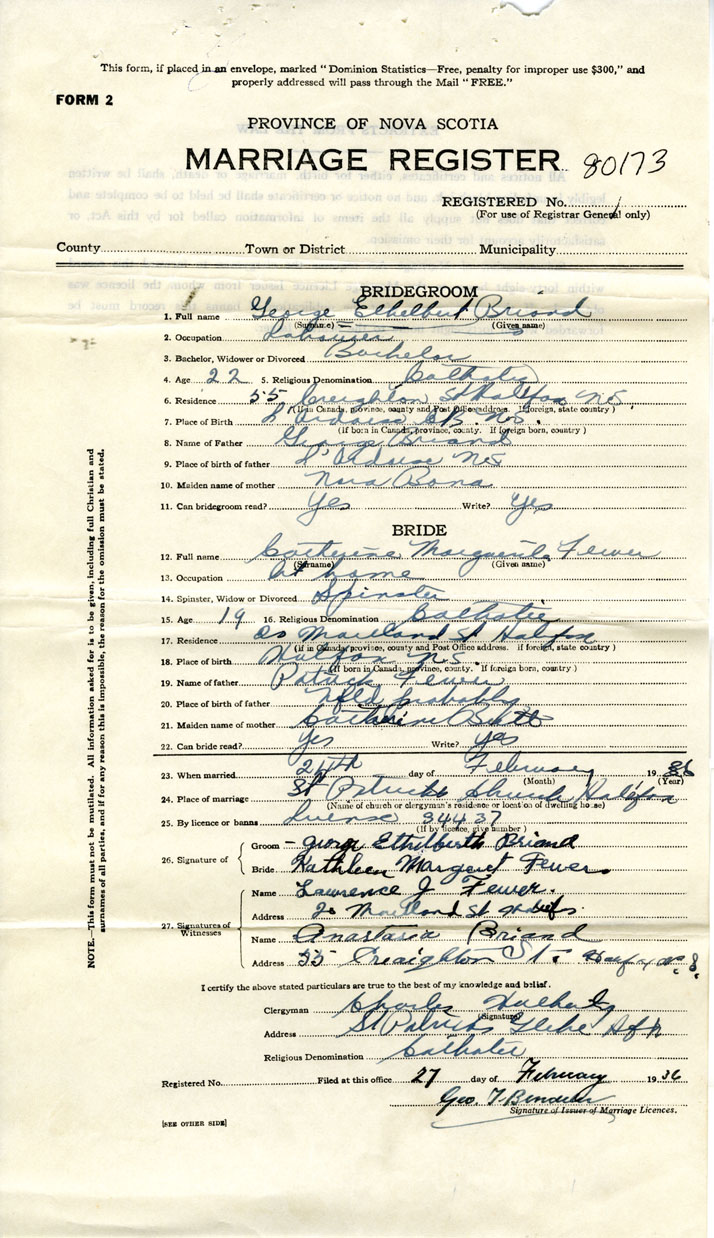 This form, if placed in an envelope, marked "Dominion Statistics—Free, penalty for improper use $300," and
properly addressed will pass through the Mail "FREE."
FORM 2
PROVINCE OF NOVA SCOTIA
MARRIAGE REGISTER 80173
REGISTERED No.
(For use of Registrar General only)
County Town or District Municipality
BRIDEGROOM
1. Full name George Ethelbert Briand
(Surname) (Given name)
2. Occupation Labourer
3. Bachelor, Widower or Divorced Bachelor
4. Age 22 5. Religious Denomination Catholic
6. Residence 55 Creighton St Halifax N.S.
(If in Canada, province, county and Post Office address. If foreign, state country)
7. Place of Birth L'Ardoise C.B. N.S.
(If born in Canada, province, county. If foreign born, country)
8. Name of Father George Briand
9. Place of birth of father L'Ardoise N.S.
10. Maiden name of mother Nora
11. Can bridegroom read? Yes Write? Yes
BRIDE
12. Full name Catherine Marguerite Fewer
(Surname) (Given name)
13. Occupation At home
14. Spinster, Widow or Divorced Spinster
15. Age 19 16. Religious Denomination Catholic
17. Residence 20 Maitland St Halifax
(if in Canada, province, county and Post Office address. if foreign, state country)
18. Place of birth Halifax N.S.
(If born in Canada, province, county. If foreign born, country)
19. Name of father Patrick Fewer
20. Place of birth of father Nfld probably
21. Maiden name of mother Catherine
22. Can bride read? Yes Write? Yes
23. When married 24th day of February 1936
(Month) (Year)
24. Place of marriage St Patricks Church Halifax
(Name of church or clergyman's residence or location of dwelling house)
25. By licence or banns License 34437
(If by licence, give number)
26. Signature of
Groom - George Ethelberth Briand
Bride Kathleen Margaret Fewer
27. Signatures of Witnesses
Name Lawrence J. Fewer.
Address 20 Maitland St Halifx
Name Anastasia Briand
Address 55 Creaighton St. Halifax N.S.
I certify the above stated particulars are to the best of my knowledge and belief.
Clergyman Charles
(Signature)
Address St Patricks Glebe Hfx
Religious Denomination Catholic
Registered No. Filed at this office 27 day of February 1936
Geo. T.
Signature of Issuer of Marriage Licences.
[SEE OTHER SIDE]
NOTE.—This form must not be mutilated. All information asked for is to be given, including full Christian and
surnames of all parties, and if for any reason this is impossible, the reason for the omission must be stated.